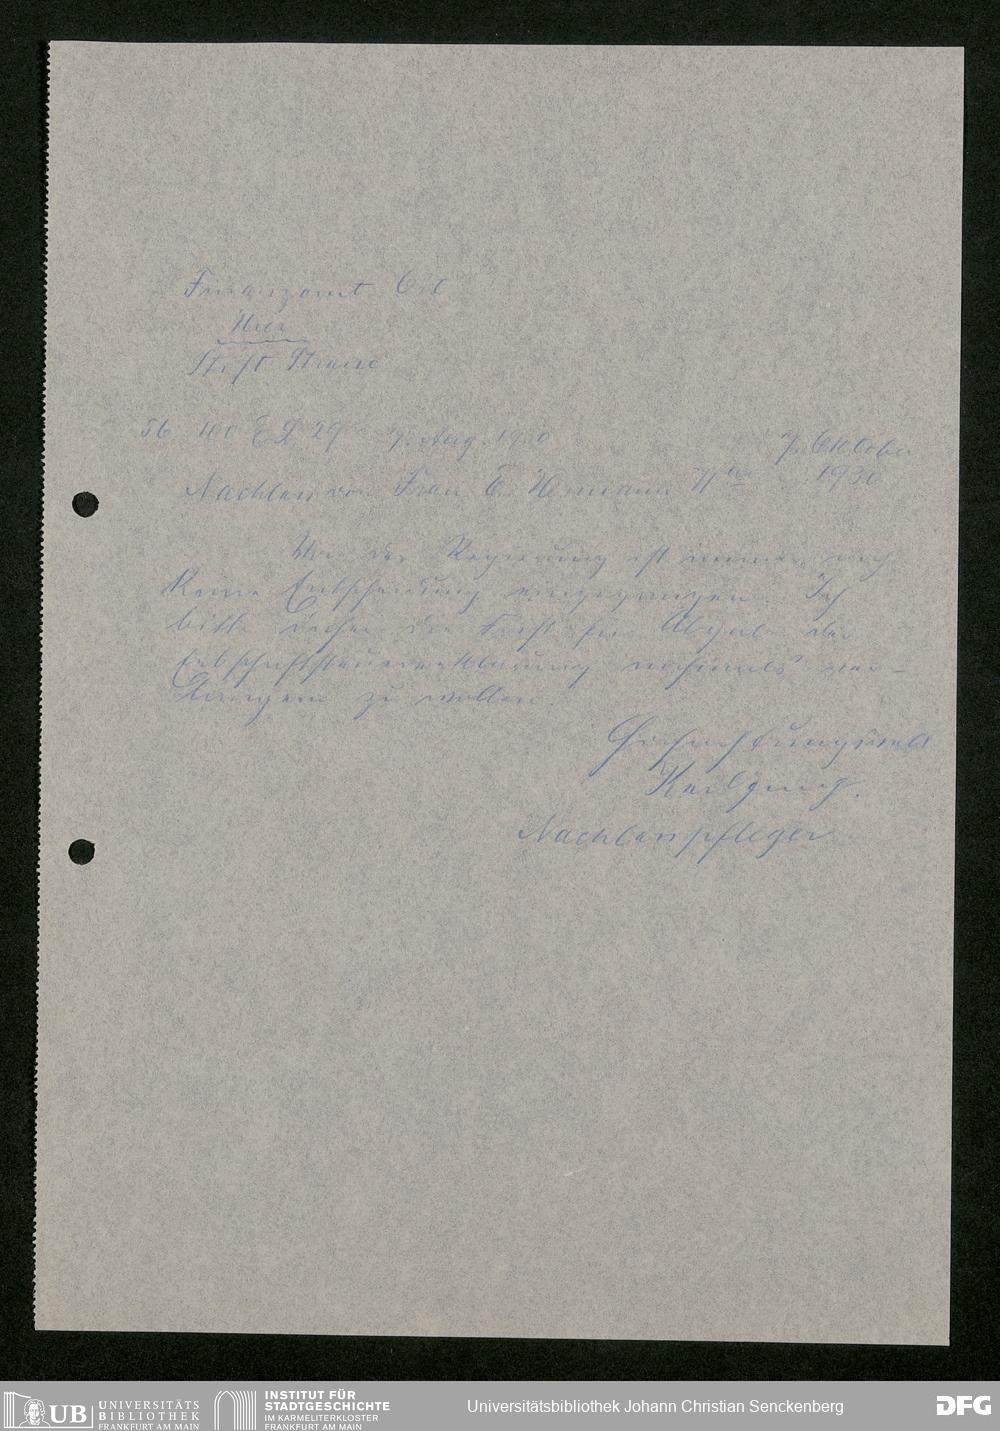 Finanzamt Ost
Hier
Stift Strasse
56 400 E L 29 7. Aug. 1930
7. Oktober
1930
Nachlass von Frau E. Hermann Wwe
Von der Regierung ist immer noch
keine Entscheidung eingegangen. Ich
bitte daher die Frist für Abgabe der
Erbschaftssteuererklärung nochmals ver-
längern zu wollen.
Hochachtungsvoll
Nachlasspfleger
UB UNIVERSITÄTS
BIBLIOTHEK
FRANKFURT AM MAIN
INSTITUT FÜR
STADTGESCHICHTE
IM KARMELITERKLOSTER
FRANKFURT AM MAIN
Universitätsbibliothek Johann Christian Senckenberg
DFG